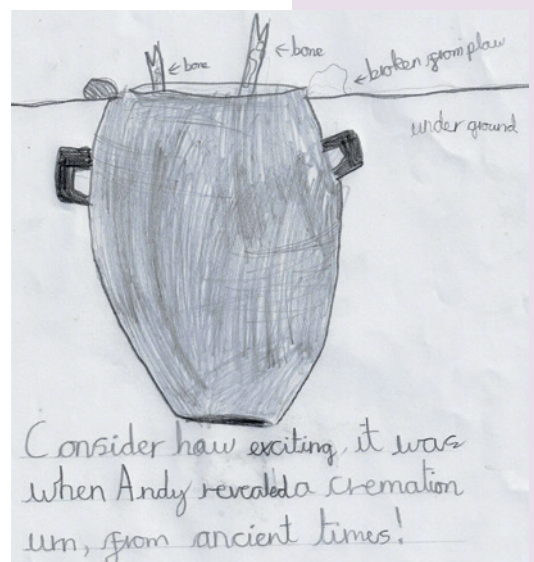 ←bone
←bone
←broken from plaw
under ground
Consider haw exciting, it was
when Andy revealed a cremation
urn, from ancient times!